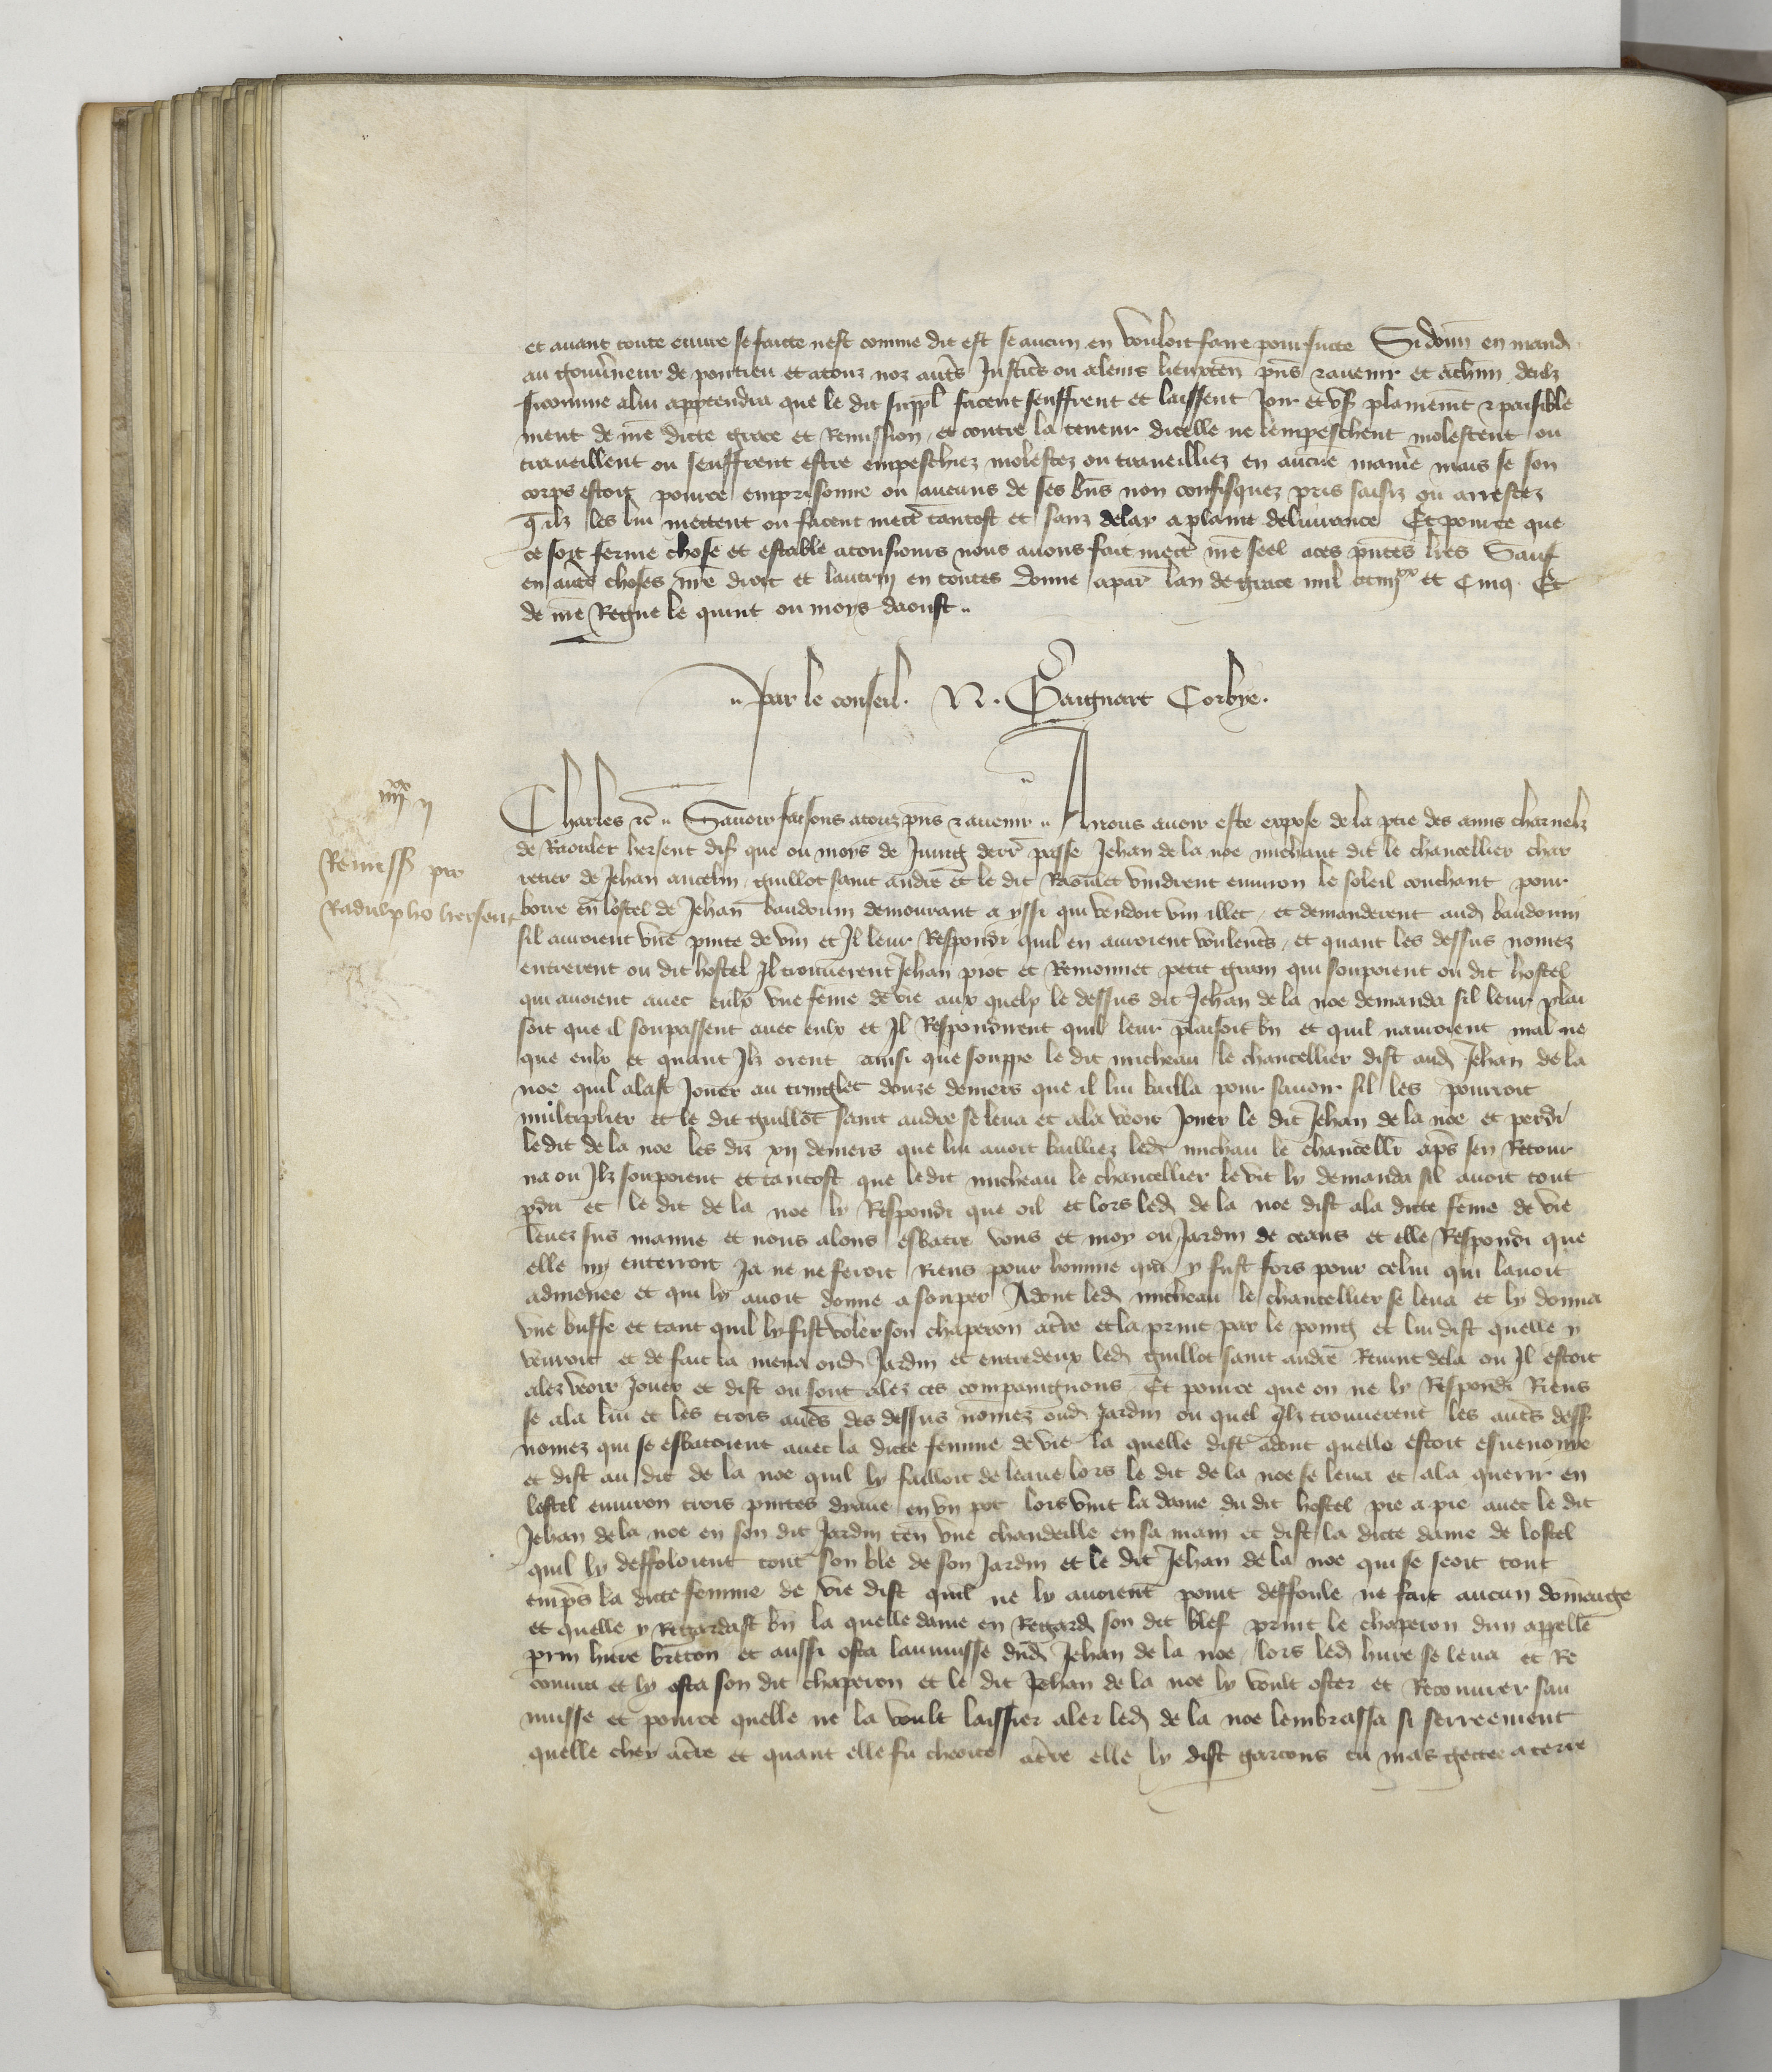 et auant toute euure se faicte nest comme dit est se aucun en vouloit faire poursuite Si donn en mand
au gouuneur de pontieu et atouz noz auts Justices ou aleurs lieuxten pns z auenir et achun deulz
sicomme alui appartendra que le dit suppl facent seuffrent et laissent Joir et us plainemt z paisible
ment de nre dicte grace et Remission et contre la teneur dicelle ne lempeschent molestent ou
traueillent ou seuffrent estre empeschiez molestez ou traueilliez en aucune manie mais se son
corps estoit pource emprisonne ou aucuns de ses bns non confisquez pris saisiz ou arrestez
quilz les lui mettent ou facent mect tantost et sanz delay a plaine deliurance Et pource que
ce soit ferme chose et estable atousiours nous auons fait mect nre seel aces pntes lres Sauf
en auts choses nre droit et lautruy en toutes donne a par lan de grace mil CCC iiijxx et Cinq Et
de nre Regne le quint ou moys daoust
Par le conseil. N. Gaignart Corbye.
iiijxx ij
Remiss pro
Radulpho hersent
Charles zc Sauoir faisons atouz pns z auenir A nous auoir este expose de la ptie des amis charnelz
de Raoulet hersent dis que ou moys de Juing derr passe Jehan de la noe michaut dit le chancellier char
retier de Jehan ancelin guillot saint andre et le dit Raoulet vindrent enuiron le soleil couchant pour
boire en lostel de Jehan baudouin demourant a yssi qui vendoit vin illec et demanderent aud baudouin
sil auroient vne pinte de vin et Jl leur Respondi quil en auroient voulents et quant les dessus nomez
entrerent ou dit hostel Jl trouuerent Jehan piot et Remonnet petit gram qui souppoient ou dit hostel
qui auoient auec eulx vne feme de vie aux quelx le dessus dit Jehan de la noe demanda sil leur plai
soit que il souppassent auec eulx et Jl Respondirent quil leur plaisoit bn et quil nauroient mal ne
que eulx et quant Jlz orent ainsi que souppe le dit micheau le chancellier dist aud Jehan de la
noe quil alast Jouer au tringlet douze deniers que il lui bailla pour sauoir sil les pourroit
multiplier et le dit guillot saint andre se leua et ala veoir Jouer le dit Jehan de la noe et perdi
ledit de la noe les diz xij deniers que lui auoit bailliez led michau le chancellr aps sen Retour
na ou Jlz souppoient et tantost que le dit micheau le chancellier le vit ly demanda sil auoit tout
pdu et le dit de la noe ly Respondi que oil et lors led de la noe dist ala dicte feme de vie
leuez sus mamie et nous alons esbatre vous et moy ou Jardin de ceans et elle Respondi que
elle ny enterroit Ja ne ne feroit Riens pour homme qui y fust fors pour celui qui lauoit
admenee et qui ly auoit donne a soupper Adont led micheau le chancellier se leua et ly donna
vne buffe et tant quil ly fist voler son chaperon atre et la print par le poing et lui dist quelle y
venroit et de fait la mena oud Jardin et entredeux led guillot saint andre Reuint dela ou Jl estoit
alez veoir Jouer et dist ou sont alez ces compaingnons Et pource que on ne ly Respondi Riens
se ala lui et les trois auts des dessus nomez oud Jardin ou quel Jlz trouuerent les auts dess
nomez qui se esbatoient auec la dicte femme de vie la quelle dist adont quelle estoit esuenome
et dist au dit de la noe quil ly failloit de leaue lors le dit de la noe se leua et ala querir en
lostel enuiron trois pintes deaue en vn pot lors vint la dame du dit hostel pie a pie auec le dit
Jehan de la noe en son dit Jardin ten vne chandeille en sa main et dist la dicte dame de lostel
quil ly deffoloient tout son ble de son Jardin et le dit Jehan de la noe qui se seoit tout
empres la dicte femme de vie dist quil ne ly auoient point deffoule ne fait aucun domage
et quelle y Regardast bn la quelle dame en Regard son dit blef print le chaperon dun appelle
prin hure breton et aussi osta laumusse dud Jehan de la noe lors led hure se leua et Re
couura et ly osta son dit chaperon et le dit Jehan de la noe ly voult oster et Recouurer sau
musse et pource quelle ne la voult laissier aler led de la noe lembrassa si serreement
quelle chey atre et quant elle fu cheoite atre elle ly dist garcons tu mas gettee aterre